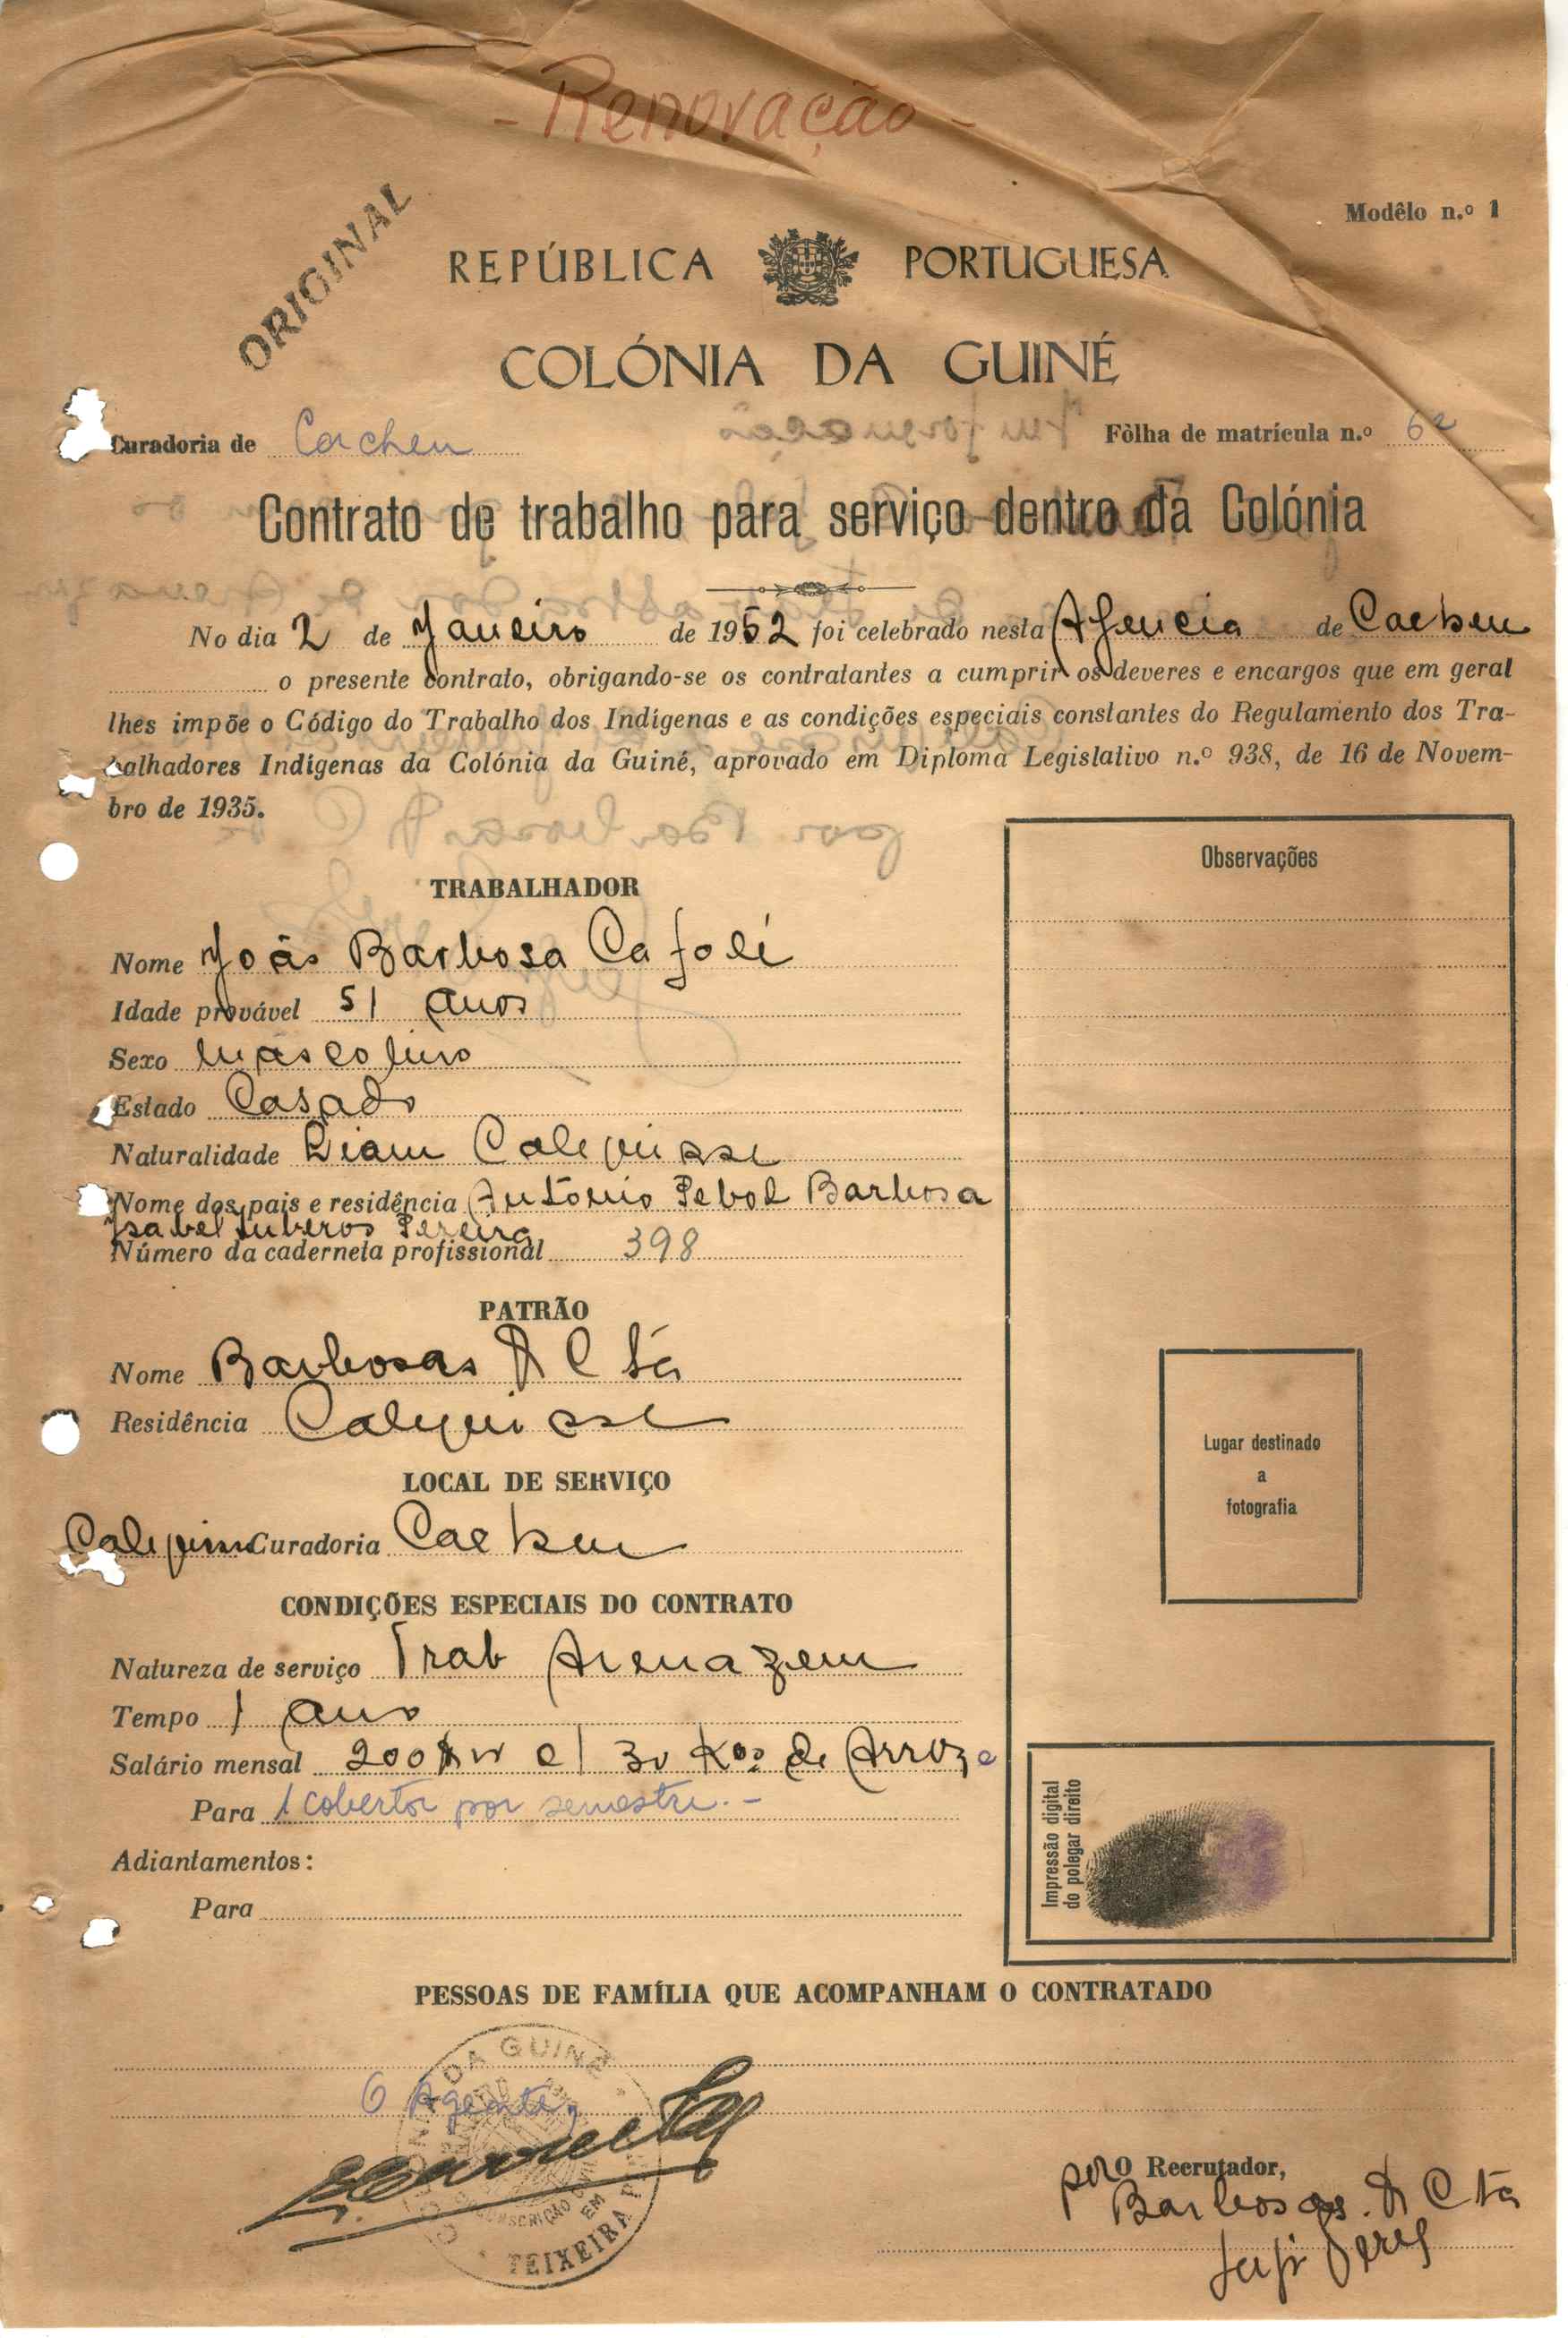 - Renovação -
Modêlo n.º 1
ORIGINAL
REPÚBLICA PORTUGUESA
COLÓNIA DA GUINÉ
Curadoria de Cacheu Fôlha de matrícula n.º 62
Contrato de trabalho para serviço dentro da Colónia
No dia 2 de Janeiro de 1952 foi celebrado nesta Agencia de Cacheu
o presente contrato, obrigando-se os contratantes a cumprir os deveres e encargos que em geral
lhes impõe o Código do Trabalho dos Indígenas e as condições especiais constantes do Regulamento dos Tra-
balhadores Indígenas da Colónia da Guiné, aprovado em Diploma Legislativo n.º 938, de 16 de Novem-
bro de 1935.
Observações
TRABALHADOR
Nome João Barbosa Cafoli
Idade provável 51 anos
Sexo Mascolino
Estado Casado
Naturalidade Calequisse
Nome dos pais e residência António Barbosa
Isabel Pereira
Número da caderneta profissional 398
PATRÃO
Nome Barbosas & Cta
Residência Calequisse
LOCAL DE SERVIÇO
Calequisse Curadoria Cacheu
CONDIÇÕES ESPECIAIS DO CONTRATO
Natureza de serviço Trab Armazem
Tempo 1 ano
Salário mensal 200$00 c/ 30 Kos de Arroz e
Para 1 cobertor por semestre. -
Adiantamentos:
Para
Lugar destinado
a
fotografia
Impressão digital
do polegar direito
PESSOAS DE FAMÍLIA QUE ACOMPANHAM O CONTRATADO
O Agente,
COLÓNIA DA GUINÉ
EM
TEIXEIRA
pelo O Recrutador,
Barbosas & Cta